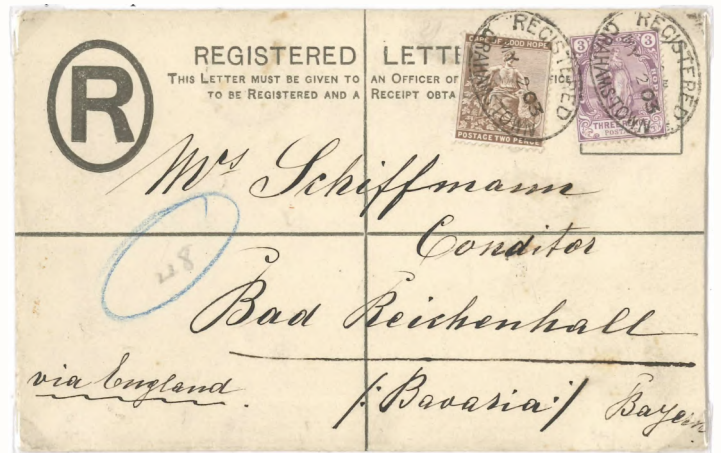 R
REGISTERED LETTE
THIS LETTER MUST BE GIVEN TO AN OFFICER OF
TO BE REGISTERED AND A RECEIPT OBTA
CAPE OF GOOD HOPE
POSTAGE TWO PENCE
REGISTERED
GRAHAMSTOWN
MY 2 03
3 3
THREE
POSTA
REGISTERED
GRAHAMSTOWN
MY 2 03
Mrs Schiffmann
Conditor
228
Bad Reichenhall
via England.
/: Bavaria :/ Bayern